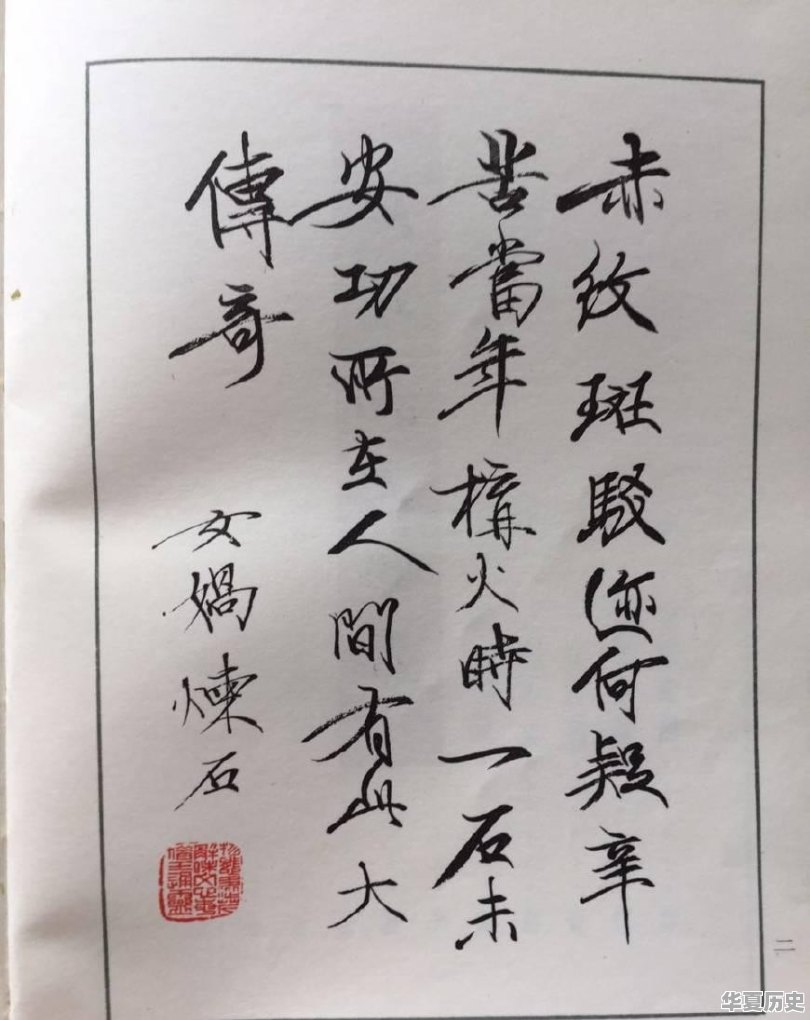 赤紋斑駁迹何疑辛
苦當年構火時一石未
安功所在人間有此大
傳奇
女媧煉石
二
华夏历史